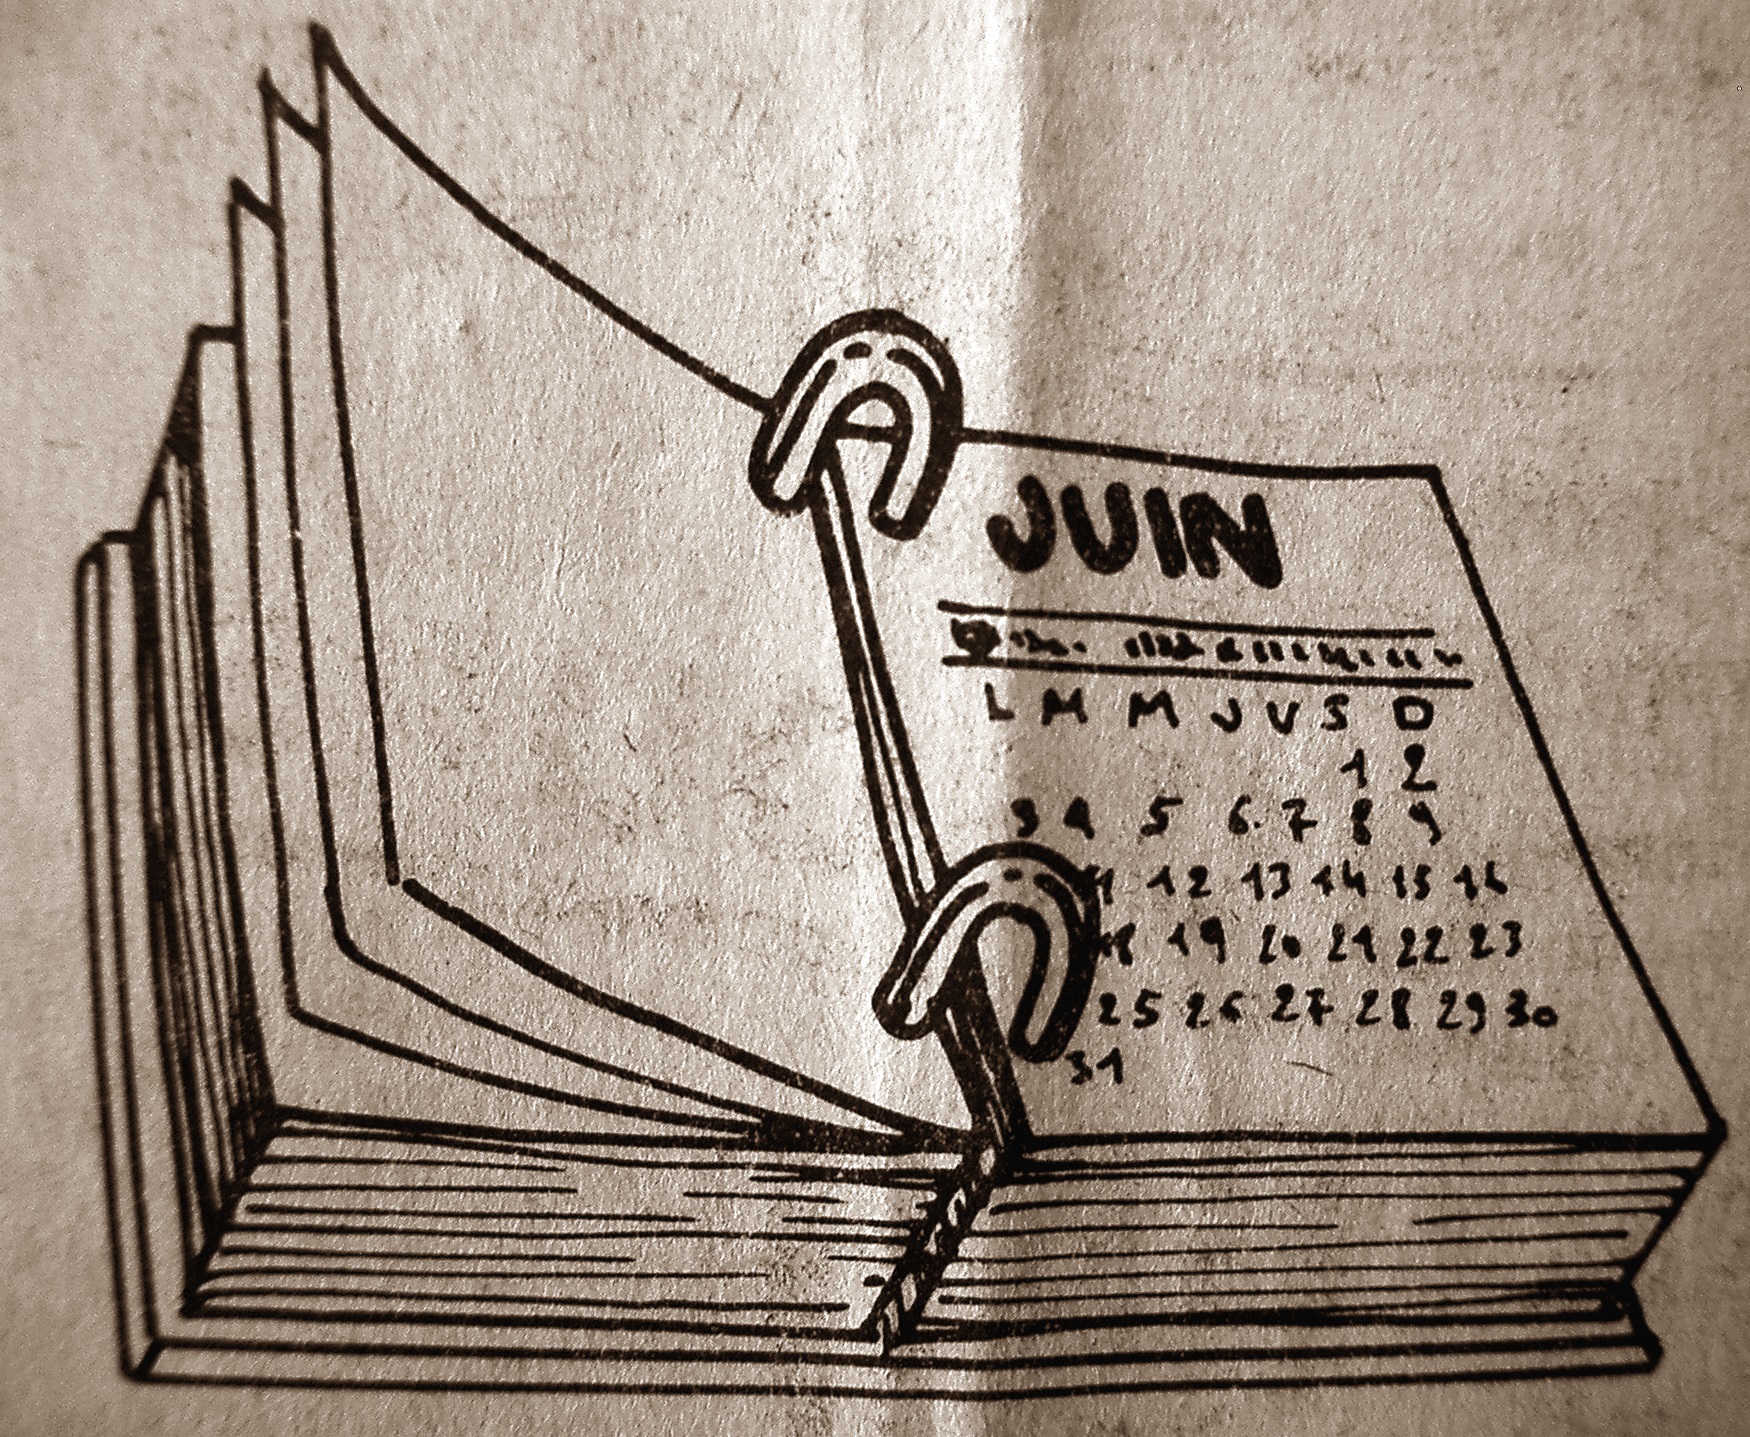 JUIN
L M M J V S D
1 2
3 4 5 6 7 8 9
11 12 13 14 15 16
18 19 20 21 22 23
25 26 27 28 29 30
31